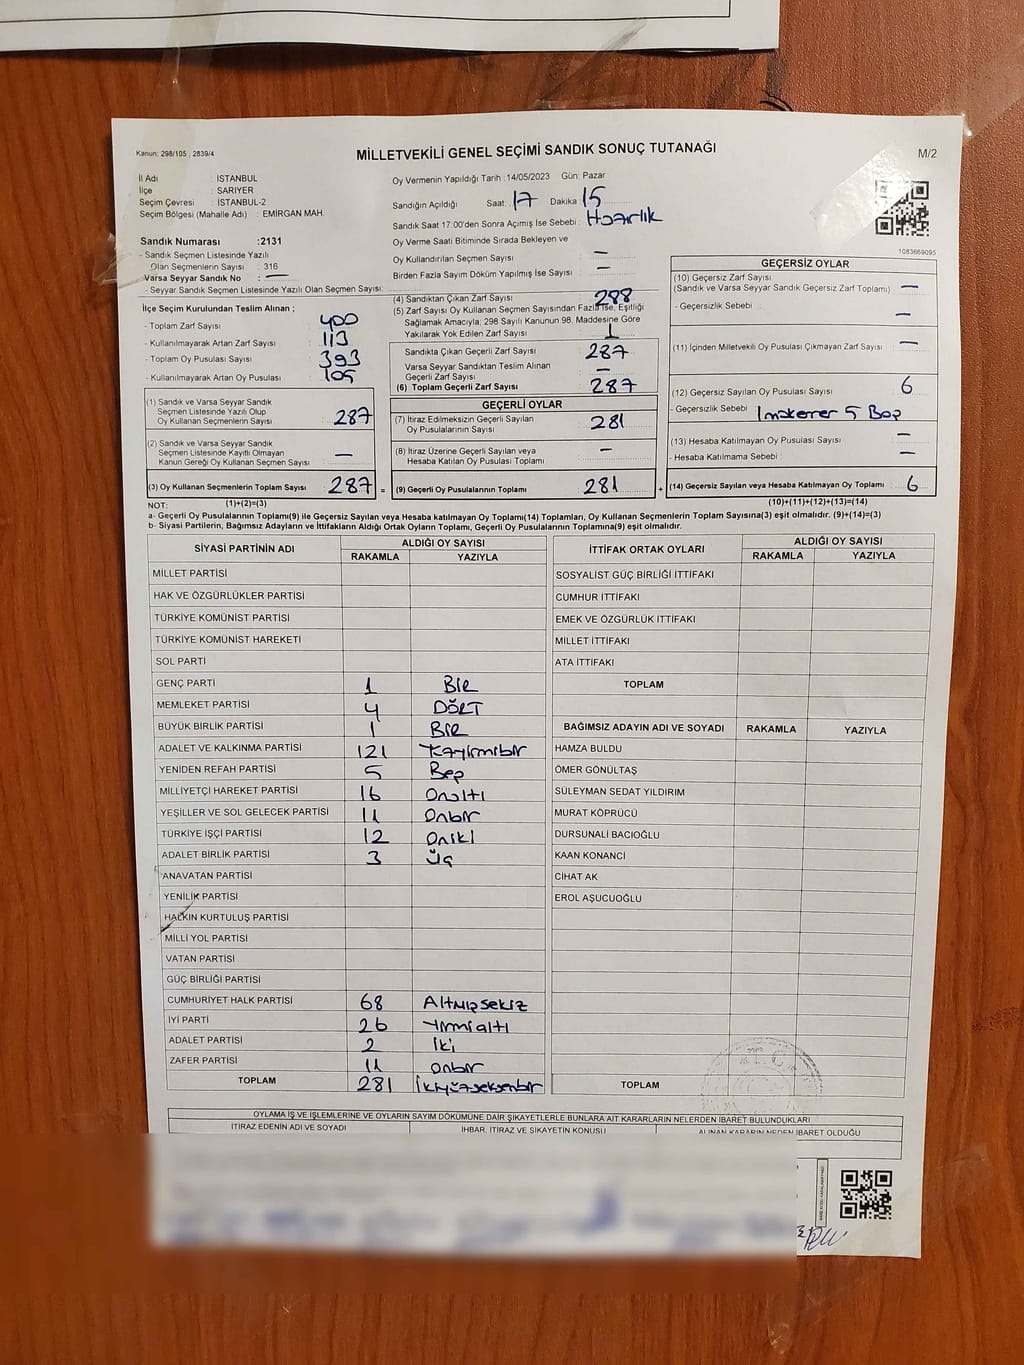 Kanun; 298/105 , 2839/4
MİLLETVEKİLİ GENEL SEÇİMİ SANDIK SONUÇ TUTANAĞI
M/2
İl Adı : İSTANBUL
İlçe : SARIYER
Seçim Çevresi : İSTANBUL-2
Seçim Bölgesi (Mahalle Adı) : EMİRGAN MAH.
Sandık Numarası :2131
- Sandık Seçmen Listesinde Yazılı
Olan Seçmenlerin Sayısı : 316
Varsa Seyyar Sandık No : —
- Seyyar Sandık Seçmen Listesinde Yazılı Olan Seçmen Sayısı:
Oy Vermenin Yapıldığı Tarih :14/05/2023 Gün: Pazar
Sandığın Açıldığı Saat : 17 Dakika 15
Sandık Saat 17:00'den Sonra Açımış İse Sebebi : Hazırlık
Oy Verme Saati Bitiminde Sırada Bekleyen ve
Oy Kullandırılan Seçmen Sayısı : —
Birden Fazla Sayım Döküm Yapılmış İse Sayısı : —
1083669095
İlçe Seçim Kurulundan Teslim Alınan ;
- Toplam Zarf Sayısı : 400
- Kullanılmayarak Artan Zarf Sayısı : 113
- Toplam Oy Pusulası Sayısı : 393
- Kullanılmayarak Artan Oy Pusulası : 105
(1) Sandık ve Varsa Seyyar Sandık
Seçmen Listesinde Yazılı Olup
Oy Kullanan Seçmenlerin Sayısı : 287
(2) Sandık ve Varsa Seyyar Sandık
Seçmen Listesinde Kayıtlı Olmayan
Kanun Gereği Oy Kullanan Seçmen Sayısı : —
(3) Oy Kullanan Seçmenlerin Toplam Sayısı : 287 =
(1)+(2)=(3)
(4) Sandıktan Çıkan Zarf Sayısı : 288
(5) Zarf Sayısı Oy Kullanan Seçmen Sayısından Fazla İse, Eşitliği
Sağlamak Amacıyla; 298 Sayılı Kanunun 98. Maddesine Göre
Yakılarak Yok Edilen Zarf Sayısı : 1
Sandıkta Çıkan Geçerli Zarf Sayısı : 287
Varsa Seyyar Sandıktan Teslim Alınan
Geçerli Zarf Sayısı : —
(6) Toplam Geçerli Zarf Sayısı : 287
GEÇERLİ OYLAR
(7) İtiraz Edilmeksizin Geçerli Sayılan
Oy Pusulalarının Sayısı : 281
(8) İtiraz Üzerine Geçerli Sayılan veya
Hesaba Katılan Oy Pusulası Toplamı : —
(9) Geçerli Oy Pusulalarının Toplamı : 281 +
GEÇERSİZ OYLAR
(10) Geçersiz Zarf Sayısı
(Sandık ve Varsa Seyyar Sandık Geçersiz Zarf Toplamı) : —
- Geçersizlik Sebebi : —
(11) İçinden Milletvekili Oy Pusulası Çıkmayan Zarf Sayısı : —
(12) Geçersiz Sayılan Oy Pusulası Sayısı : 6
- Geçersizlik Sebebi : 5 Boş
(13) Hesaba Katılmayan Oy Pusulası Sayısı : —
- Hesaba Katılmama Sebebi : —
(14) Geçersiz Sayılan veya Hesaba Katılmayan Oy Toplamı : 6
(10)+(11)+(12)+(13)=(14)
NOT:
a- Geçerli Oy Pusulalarının Toplamı(9) ile Geçersiz Sayılan veya Hesaba katılmayan Oy Toplamı(14) Toplamları, Oy Kullanan Seçmenlerin Toplam Sayısına(3) eşit olmalıdır. (9)+(14)=(3)
b- Siyasi Partilerin, Bağımsız Adayların ve İttifakların Aldığı Ortak Oyların Toplamı, Geçerli Oy Pusulalarının Toplamına(9) eşit olmalıdır.
SİYASİ PARTİNİN ADI ALDIĞI OY SAYISI
RAKAMLA YAZIYLA
MİLLET PARTİSİ
HAK VE ÖZGÜRLÜKLER PARTİSİ
TÜRKİYE KOMÜNİST PARTİSİ
TÜRKİYE KOMÜNİST HAREKETİ
SOL PARTİ
GENÇ PARTİ 1 BİR
MEMLEKET PARTİSİ 4 DÖRT
BÜYÜK BİRLİK PARTİSİ 1 BİR
ADALET VE KALKINMA PARTİSİ 121
YENİDEN REFAH PARTİSİ 5 Beş
MİLLİYETÇİ HAREKET PARTİSİ 16 Onaltı
YEŞİLLER VE SOL GELECEK PARTİSİ 11 Onbir
TÜRKİYE İŞÇİ PARTİSİ 12 Oniki
ADALET BİRLİK PARTİSİ 3 Üç
ANAVATAN PARTİSİ
YENİLİK PARTİSİ
HALKIN KURTULUŞ PARTİSİ
MİLLİ YOL PARTİSİ
VATAN PARTİSİ
GÜÇ BİRLİĞİ PARTİSİ
CUMHURİYET HALK PARTİSİ 68 Altmışsekiz
İYİ PARTİ 26 Yirmialtı
ADALET PARTİSİ 2 İki
ZAFER PARTİSİ 11 Onbir
TOPLAM 281 İkiyüzseksenbir
İTTİFAK ORTAK OYLARI ALDIĞI OY SAYISI
RAKAMLA YAZIYLA
SOSYALİST GÜÇ BİRLİĞİ İTTİFAKI
CUMHUR İTTİFAKI
EMEK VE ÖZGÜRLÜK İTTİFAKI
MİLLET İTTİFAKI
ATA İTTİFAKI
TOPLAM
BAĞIMSIZ ADAYIN ADI VE SOYADI RAKAMLA YAZIYLA
HAMZA BULDU
ÖMER GÖNÜLTAŞ
SÜLEYMAN SEDAT YILDIRIM
MURAT KÖPRÜCÜ
DURSUNALİ BACIOĞLU
KAAN KONANCİ
CİHAT AK
EROL AŞUCUOĞLU
TOPLAM
OYLAMA İŞ VE İŞLEMLERİNE VE OYLARIN SAYIM DÖKÜMÜNE DAİR ŞİKAYETLERLE BUNLARA AİT KARARLARIN NELERDEN İBARET BULUNDUKLARI
İTİRAZ EDENİN ADI VE SOYADI İHBAR, İTİRAZ VE ŞİKAYETİN KONUSU ALINAN KARARIN NEDEN İBARET OLDUĞU